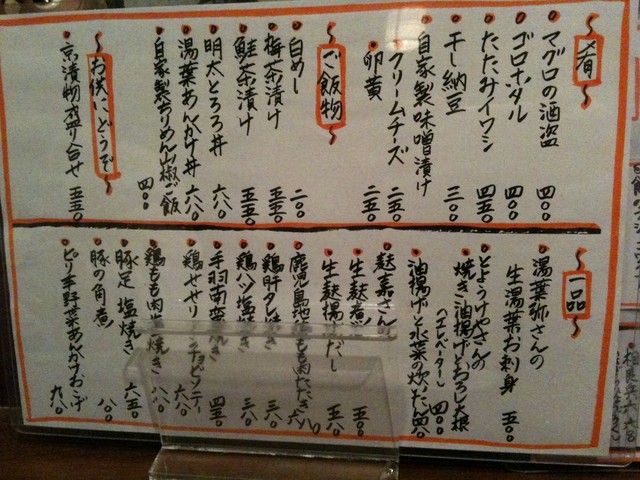 ～肴～
マグロの酒盗 四〇〇
ゴロホタル 四〇〇
たたみイワシ 四五〇
干し納豆 三〇〇
自家製味噌漬け
クリームチーズ 二五〇
卵黄 二五〇
～ご飯物～
白めし 二〇〇
梅茶漬け 五五〇
鮭茶漬け 五五〇
明太とろろ丼 六八〇
湯葉あんかけ丼 六八〇
自家製ちりめん山椒ご飯 四〇〇
～お供にどうぞ～
京漬物盛り合せ 五五〇
～一品～
湯葉弥さんの
生湯葉お刺身 五〇〇
とようけやさんの
焼き油揚げとおろし大根
(ヘエレベーター) 四〇〇
油揚げと水菜の炊いたん 四八〇
麩嘉さんの
生麩煮 五〇〇
生麩揚げだし 五八〇
鹿児島地どりもも肉たたき 六八〇
鶏肝タレ焼き 三八〇
鶏ハツ塩焼き 三八〇
手羽南蛮焼き 四五〇
鶏せせりチョビソテー 六八〇
鶏もも肉塩焼き 六八〇
豚足塩焼き 六五〇
豚の角煮 八〇〇
ピリ辛野菜あんかけおこげ 九八〇